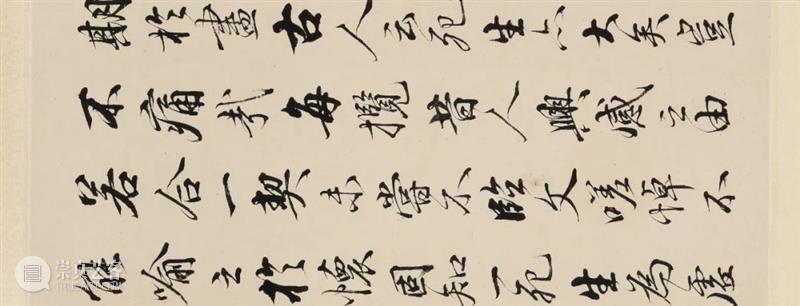 期於盡古人云死生亦大矣豈
不痛哉每攬昔人興感之由
若合一契未嘗不臨文嗟悼不
能喻之於懷固知一死生為虛
崇真艺客